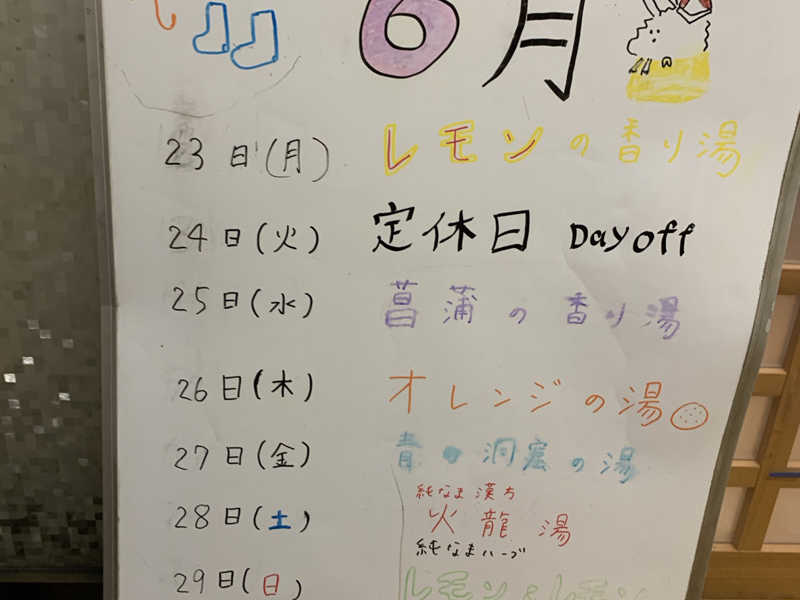 6月
23日(月) レモンの香り湯
24日(火) 定休日 Day off
25日(水) 菖蒲の香り湯
26日(木) オレンジの湯
27日(金) 青の洞窟の湯
純なま漢方
28日(土) 火龍湯
純なまハーブ
29日(日) レモン&レモン